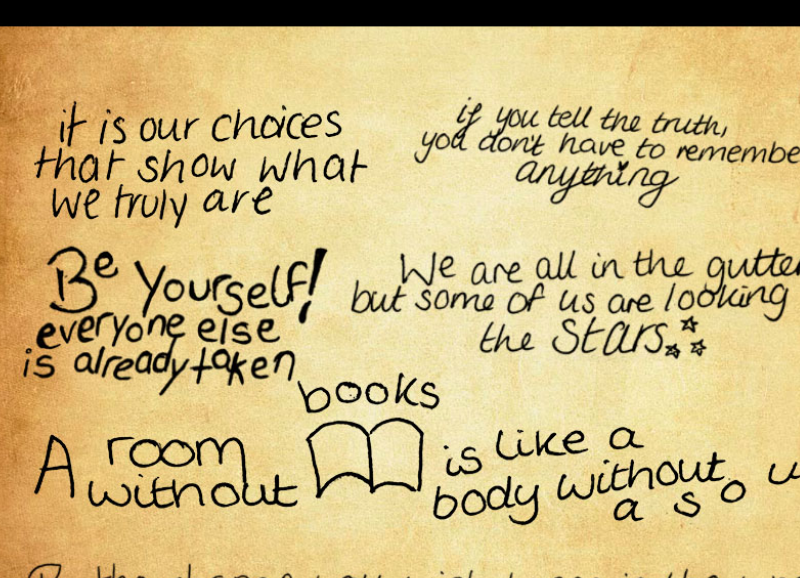 it is our choices
that show what
we truly are
if you tell the truth,
you don't have to remembe
anything
Be Yourself!
everyone else
is already taken
We are all in the gutter
but some of us are looking
the Stars
books
A room
without
is like a
body without
a s o u